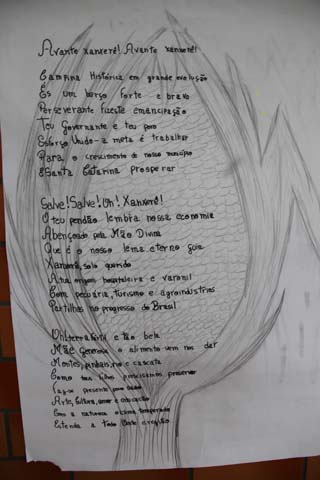 Avante xanxerê! Avante xanxerê!
Campina Histórica em grande evolução
És um berço forte e bravo
Perseverante fizeste emancipação
Teu Governante e teu povo
Esforço Unido - a meta é trabalhar
Para, o crescimento do nosso município
E Santa Catarina prosperar
Salve! Salve! Oh! Xanxerê!
O teu pendão lembra nossa economia
Abençoado pela Mão Divina
Que é o nosso lema eterno guia
Xanxerê, solo querido
Atua origem hospitaleira e varonil
Com pecuária, turismo e agroindústrias
Partilhas no progresso do Brasil
Oh! terra fértil e tão bela
Mãe generosa o alimento vem nos dar
Montes, pinhais, rio e cascata
Como teus filhos precisamos preservar
presente
Arte, Cultura, amor e educação
Com a natureza o clima temperado
Estenda a todo Oeste a região